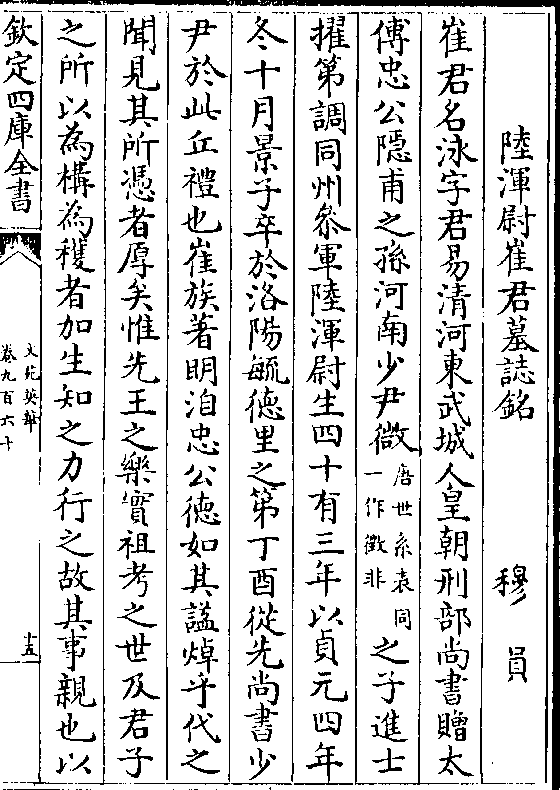 陸渾尉崔君墓誌銘 穆員
崔君名泳字君易清河東武城人皇朝刑部尚書贈太
傅忠公隱甫之孫河南少尹微唐世系表同一作徵非之子進士
擢第調同州參軍陸渾尉生四十有三年以貞元四年
冬十月景子卒於洛陽毓德里之第丁酉從先尚書少
尹於此丘禮也崔族著明洎忠公德如其謚焯乎代之
聞見其所憑者厚矣惟先王之樂實祖考之世及君子
之所以為構為穫者加生知之力行之故其事親也以
欽定四庫全書
文苑英華
卷九百六十
十五